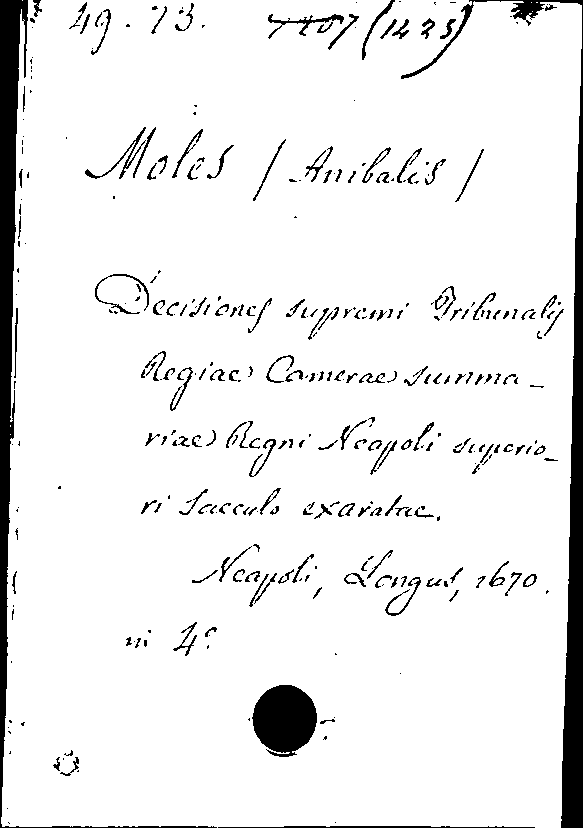 49. 73. 7107 (1425)
Moles / Anibalis /
Decisiones supremi Tribunalis
Regiae Camerae summa-
riae Regni Neapoli superio-
ri saeculo exaratae.
Neapoli, Longus, 1670.
in 4°